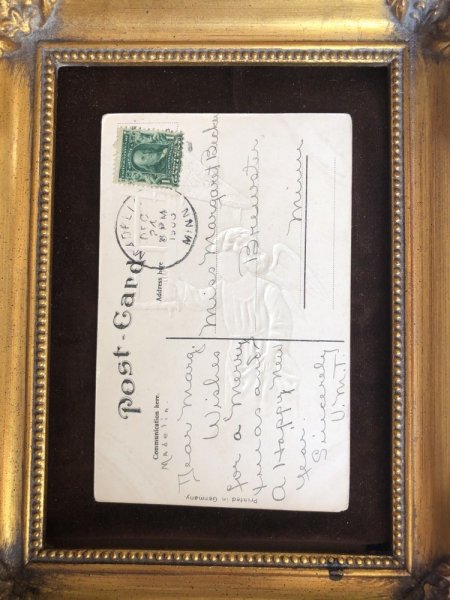 Post-Card
Communication here.
Address here
Made in
DEC
24
8 PM
MINN
Dear Marg.
Wishes
for a Merry
Xmas and
A Happy New
Year.
Sincerely
V.M.T.
Miss Margaret
Brewster,
Minn
Printed in Germany